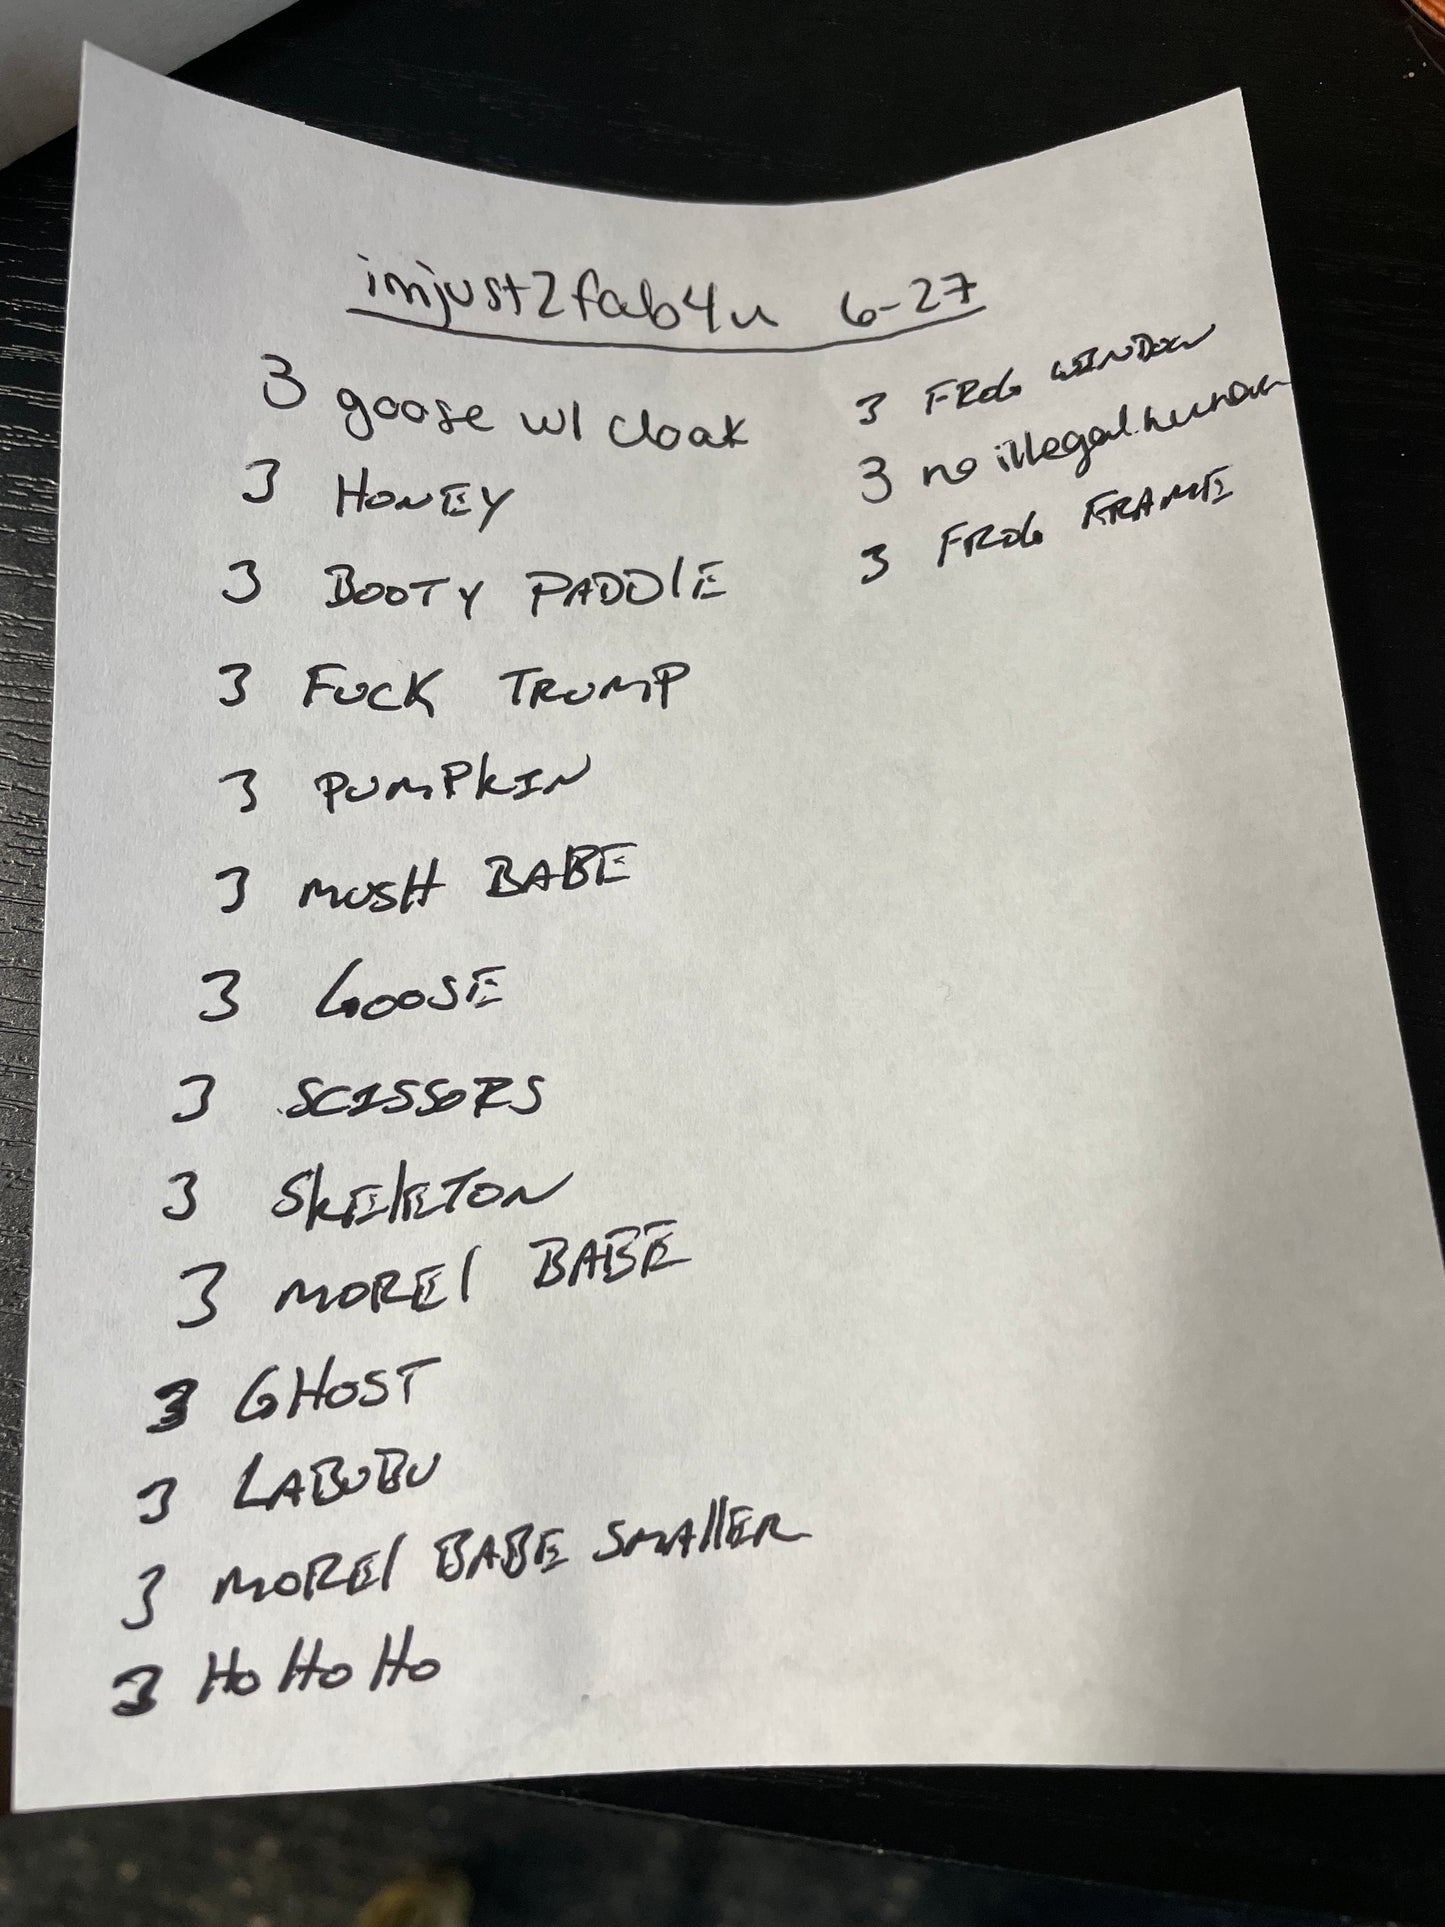 imjust2fab4u 6-27
3 goose w/ cloak
3 HONEY
3 BOOTY PADDlE
3 FUCK TRUMP
3 PUMPKIN
3 MUSH BABE
3 GOOSE
3 SCISSORS
3 SkElETON
3 MOREl BABE
3 GHOST
3 LABUBU
3 MOREl BABE SMAllER
3 Ho Ho Ho
3 FROG WINDOW
3 no illegal human
3 FROG FRAME